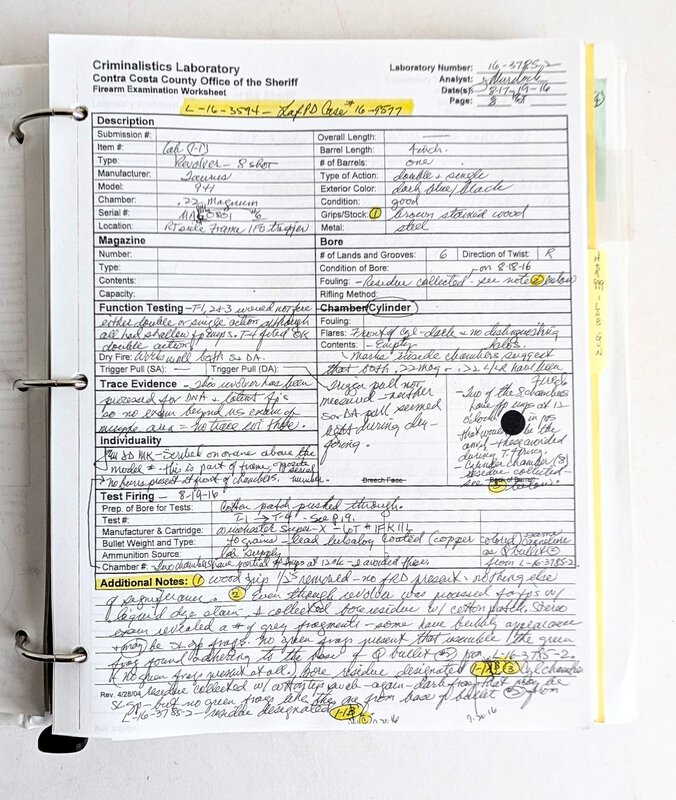 Criminalistics Laboratory
Contra Costa County Office of the Sheriff
Firearm Examination Worksheet
Laboratory Number: 16-3785-2
Analyst: Murdock
Date(s): 8-17-19-16
Page: 8
L-16-3594 - LafPD Case # 16-9577
Description
Submission #:
Item #: Lab (1-1)
Type: Revolver - 8 shot
Manufacturer: Taurus
Model: 94
Chamber: .22 magnum
Serial #:
Location: Rt side frame / to trigger
Overall Length: —
Barrel Length: 4 inch.
# of Barrels: one
Type of Action: double & single
Exterior Color: dark blue/black
Condition: good
Grips/Stock: ① brown stained wood
Metal: steel
Magazine
Number:
Type:
Contents:
Capacity:
Bore
# of Lands and Grooves: 6 Direction of Twist: R
Condition of Bore: on 8-18-16
Fouling: - Residue collected - see note ② below
Rifling Method:
Function Testing - T-1, 2 + 3 would not fire
either double or single action although
all had shallow f-p imps. T-4 fired OK
double action.
Dry Fire: Works well both S & DA.
Trigger Pull (SA): — Trigger Pull (DA): —
Chamber/Cylinder
Fouling:
Flares: Front of Cyl - dark & no distinguishing
halos.
Contents: - Empty
marks inside chambers suggest
that both .22 mag & .22 L/R have been
fired
Trace Evidence - This revolver has been
processed for DNA & latent fp's
so no exam beyond vis exam of
muzzle area - no trace evid there.
trigger pull not
measured - neither
S or DA pull seemed
light during dry-
firing.
- Two of the 8 chambers
have fp imps at 12
o'clock
that would be the
- these avoided
during T. firing.
- Cylinder chamber (8)
residue collected -
see ③ below.
Individuality
JM ID MK - Scribed on crane above the
model # - this is part of frame opposite serial
number.
no burrs present at front of chambers.
Breech Face
Back of Barrel
Test Firing - 8-19-16
Prep. of Bore for Tests: Cotton patch pushed through.
Test#: T-1 → T-4 - See p. 9.
Manufacturer & Cartridge: Winchester Super-X - LOT # 1FK111L
Bullet Weight and Type: 40 grains - lead lubaloy coated (copper colored) same
cannelure
Ammunition Source: Lab supply as Q bullet
Chamber #: - Two chambers have partial fp imps at 12 o'clk - I avoided these from L-16-3785-2
Additional Notes: ① Wood grip 1/2s removed - no fired present - nothing else
of significance. ② Even though revolver was processed for fps w/
liquid dye stain, I collected bore residue w/ cotton patch. Stereo
exam revealed a # of grey fragments - some have bubbly appearance
& may be GP frags. No green frags present that resemble the green
frag found adhering to the base of Q bullet from L-16-3785-2.
(no green frags present at all.) Bore residue designated 1-1A ③ Cyl chamber
Rev. 4/28/04 residue collected w/ cotton tip swab - again - dark frags that may be
GP - but no green frags like the one from base of bullet from
L-16-3785-2 - residue designated 1-1B
9-20-16
9-20-16